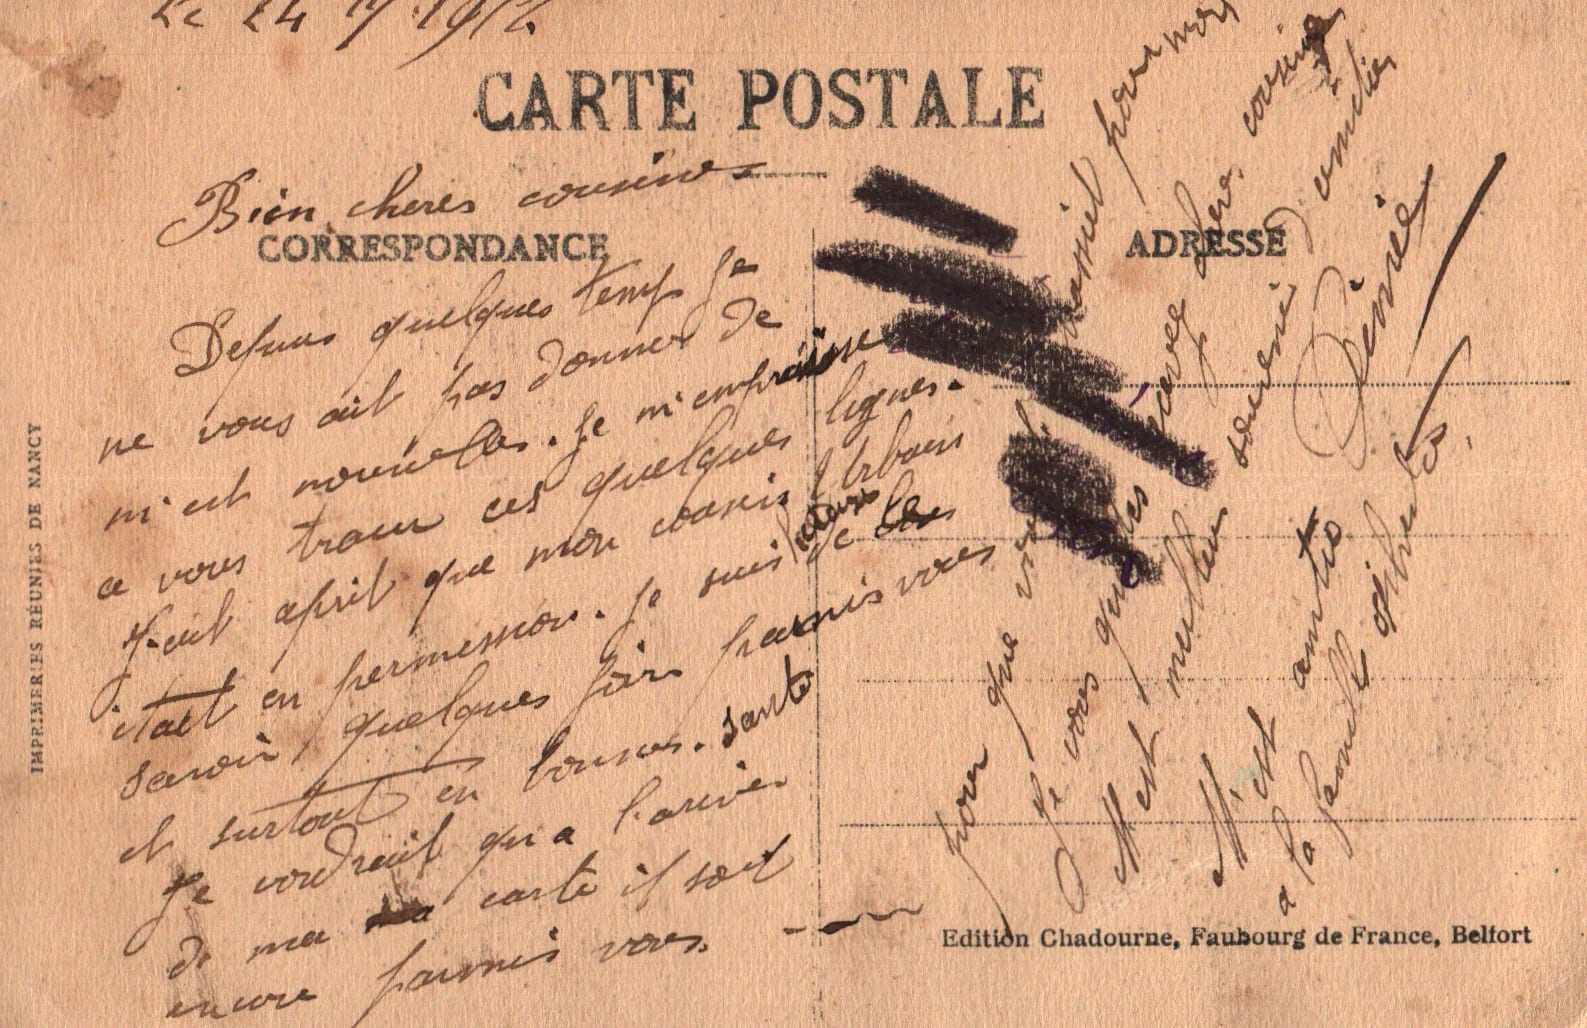 Le 24
CARTE POSTALE
Bien cheres cousine
CORRESPONDANCE
ADRESSE
Depuis quelques temp Je
ne vous ait pas donner de
m'est nouvelles. Je m'empraisse
a vous tracer ces quelques lignes.
J'ait aprit que mon cousin Urbain
itait en permession. Je suis heureuse de le
savoir quelques fois parmis vous
et surtout en bonnes. Sante
Je voudrait qu a l'arivée
de ma carte il soit
encore parmis vous.
pour que vous pour moi
Je vous quittes chere cousine
M'est meilleur souvenir
M'est amitié
a la famille
IMPRIMERIES RÉUNIES DE NANCY
Edition Chadourne, Faubourg de France, Belfort